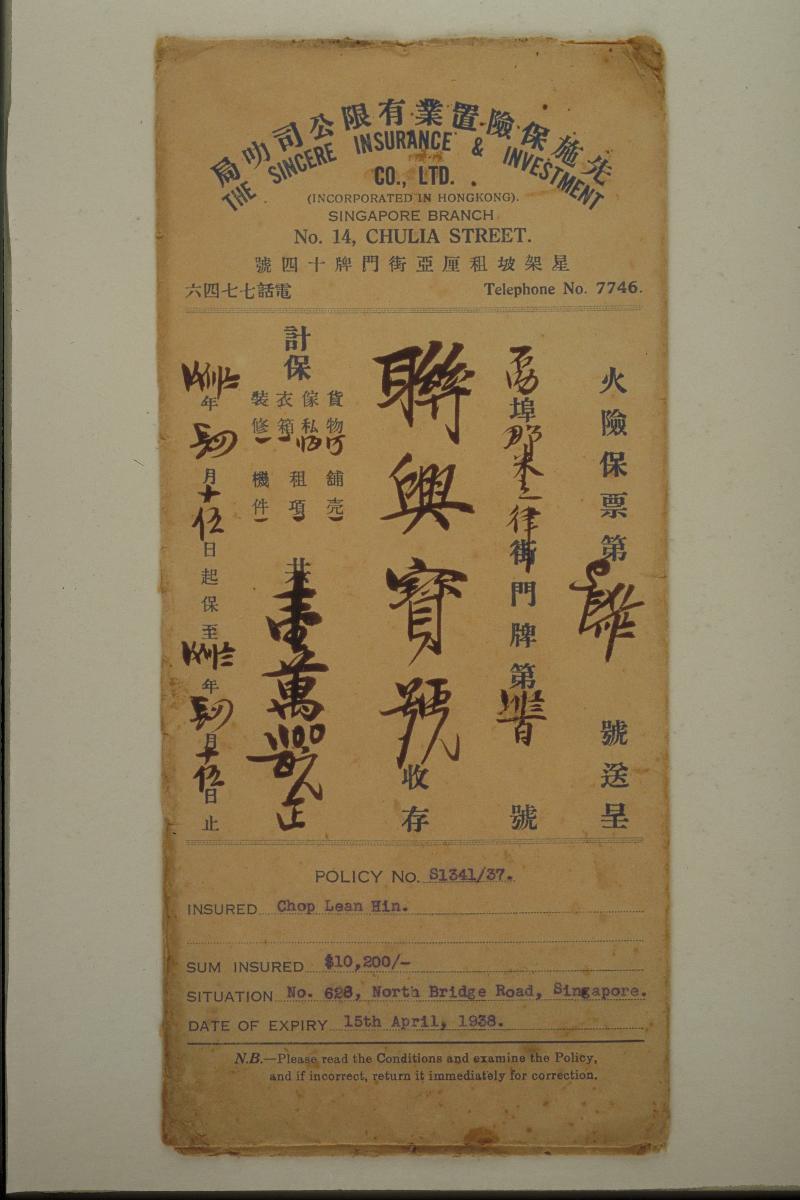 先施保險置業有限公司叻局
THE SINCERE INSURANCE & INVESTMENT
CO., LTD.
(INCORPORATED IN HONGKONG).
SINGAPORE BRANCH
No. 14, CHULIA STREET.
星架坡租厘亞街門牌十四號
電話七七四六
Telephone No. 7746.
火險保票第 號送呈
埠 律街門牌第 號
聯興寶號收存
計保
貨物 舖売
傢私 租項
衣箱
裝修 機件
共壹萬 元正
年 四月十伍日起保至 年 四月十伍日止
POLICY No. S1341/37.
INSURED Chop Lean Hin.
SUM INSURED $10,200/-
SITUATION No. 628, North Bridge Road, Singapore.
DATE OF EXPIRY 15th April, 1938.
N.B.—Please read the Conditions and examine the Policy,
and if incorrect, return it immediately for correction.